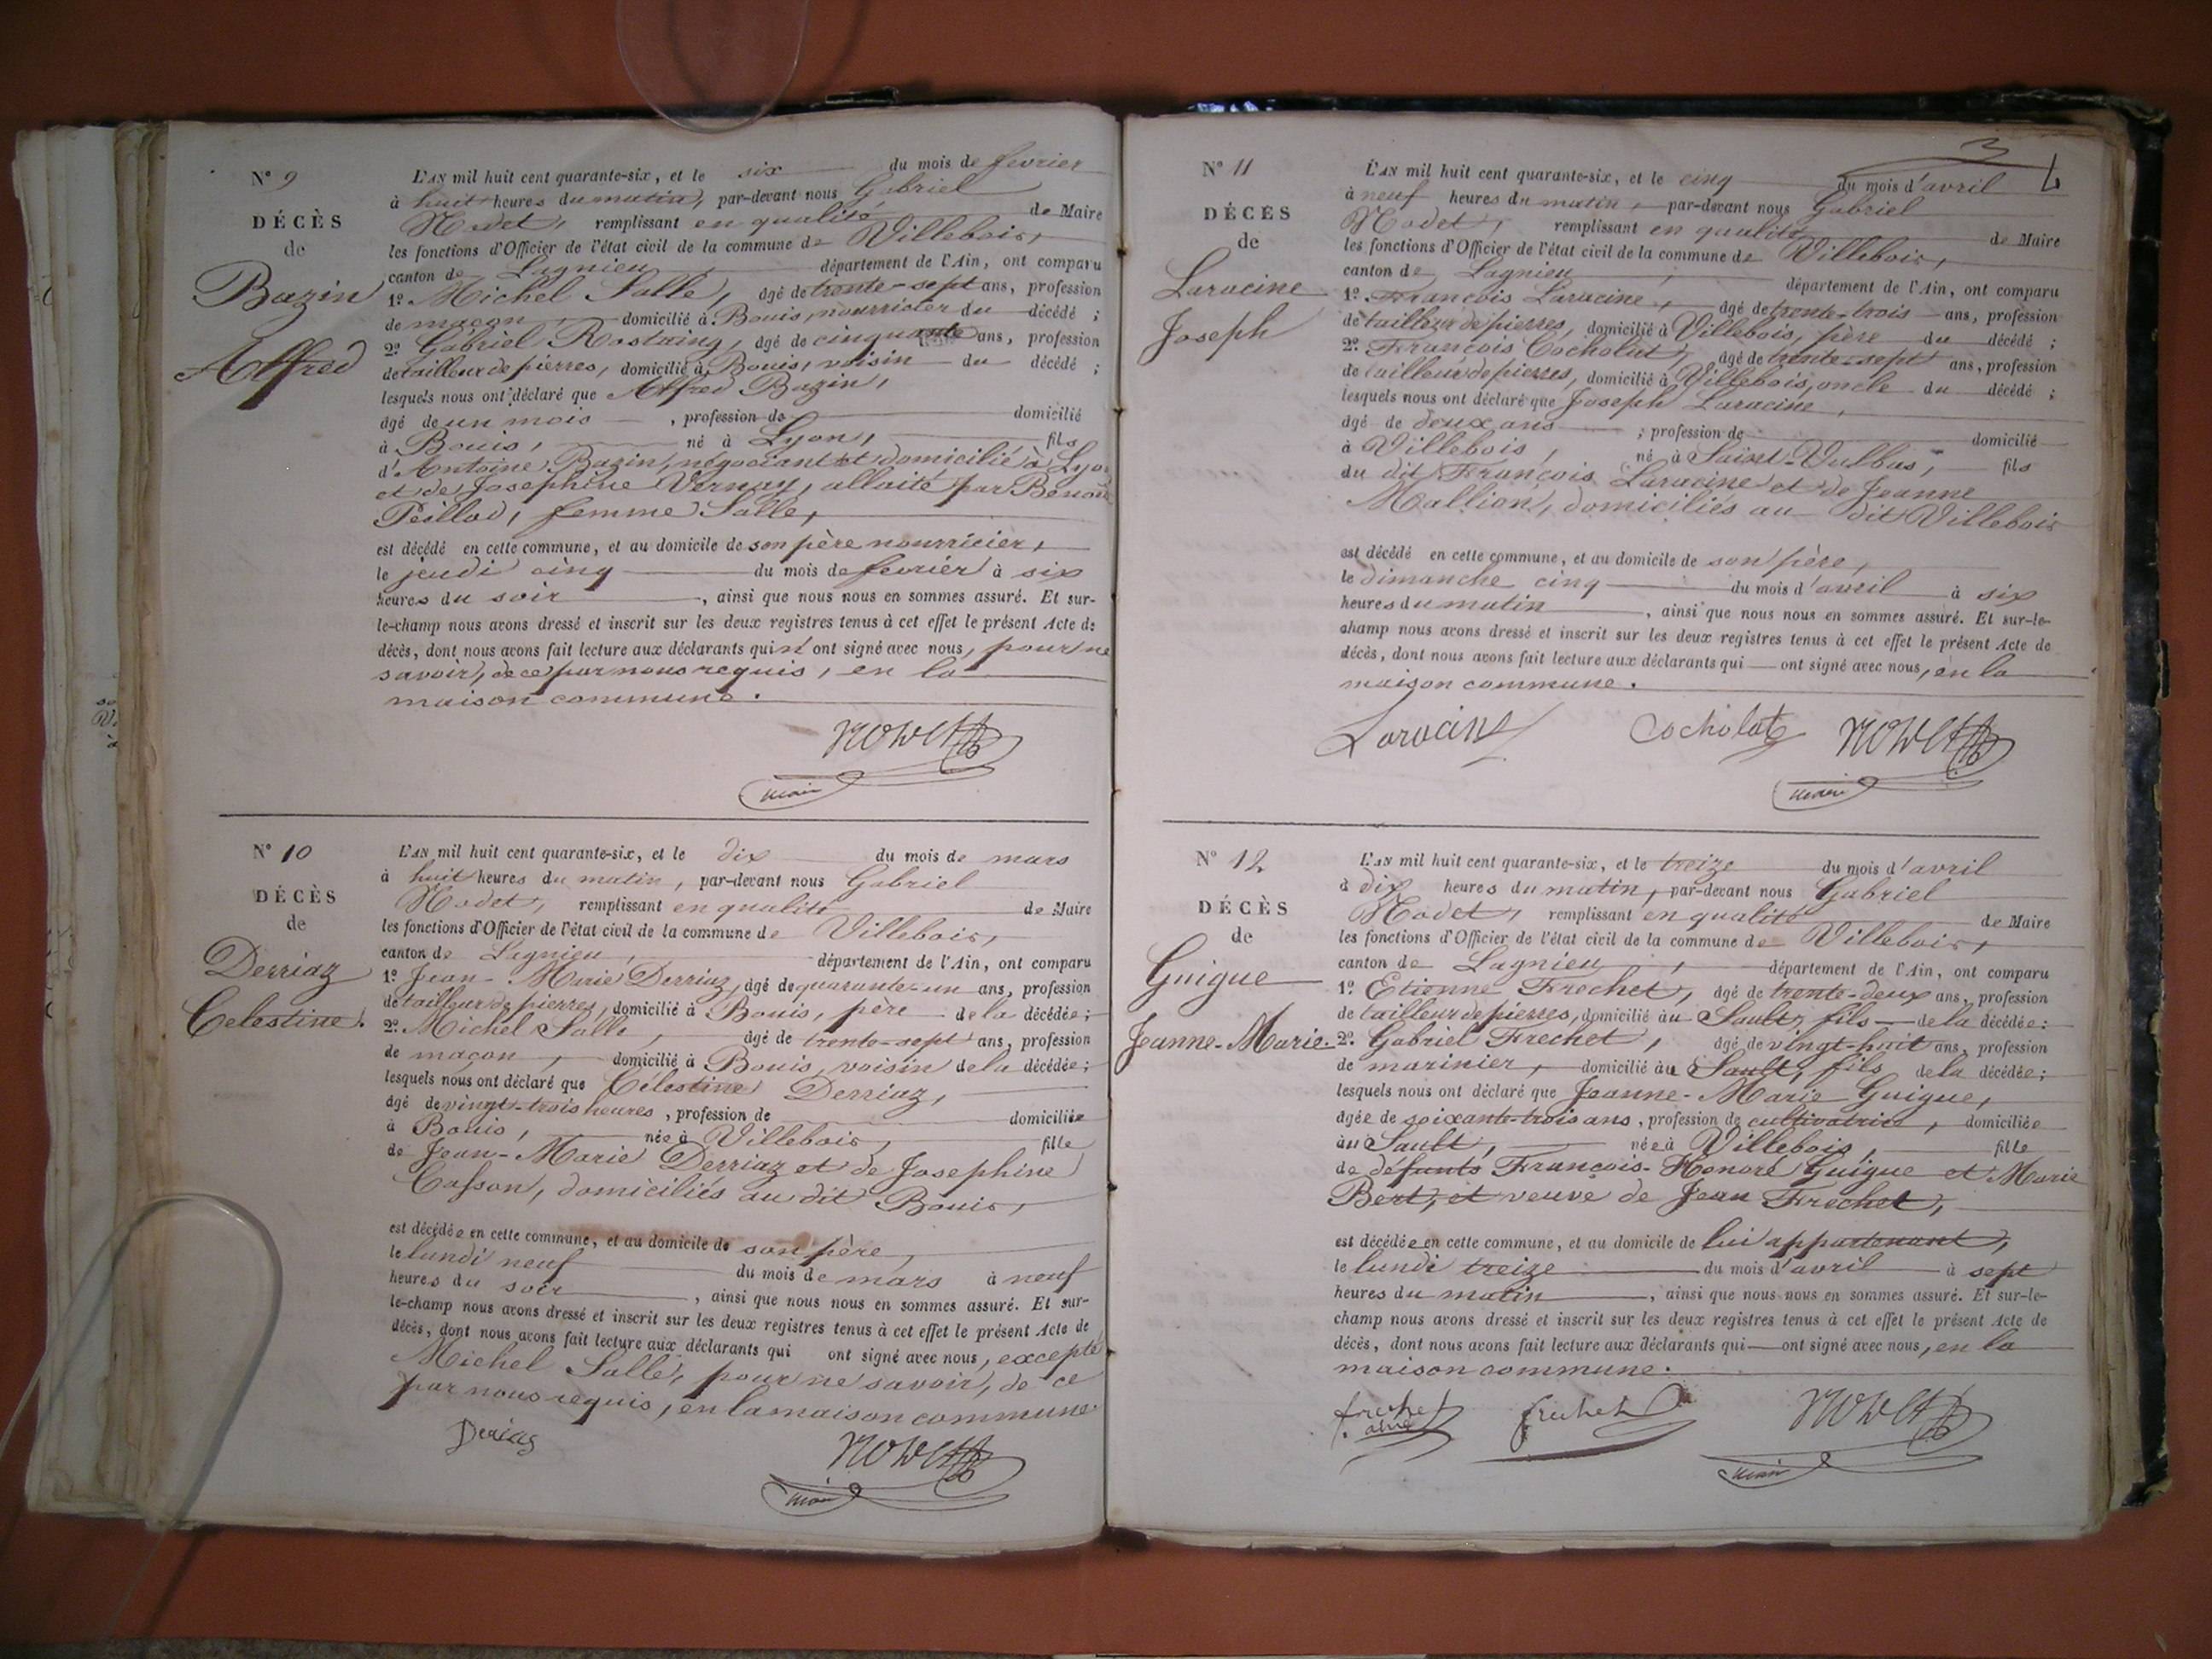 N° 9
DÉCÈS
de
Bazin
Alfred
L'AN mil huit cent quarante-six, et le six du mois de fevrier
à huit heures du matin, par-devant nous Gabriel
Nodet, remplissant en qualité de Maire
les fonctions d'Officier de l'état civil de la commune de Villebois,
canton de Lagnieu, département de l'Ain, ont comparu
1° Michel Salle, âgé de trente-sept ans, profession
de maçon, domicilié à Bouis, nourricier du décédé ;
2° Gabriel Rostaing, âgé de cinquante ans, profession
de tailleur de pierres, domicilié à Bouis, voisin du décédé ;
lesquels nous ont déclaré que Alfred Bazin,
âgé de un mois, profession de domicilié
à Bouis, né à Lyon, fils
d'Antoine Bazin, négociant et domicilié à Lyon
et de Josephine Vernay, allaité par Benoite
Peillod, femme Salle,
est décédé en cette commune, et au domicile de son père nourricier,
le jeudi cinq du mois de fevrier à six
heures du soir, ainsi que nous nous en sommes assuré. Et sur-
le-champ nous avons dressé et inscrit sur les deux registres tenus à cet effet le présent Acte de
décès, dont nous avons fait lecture aux déclarants qui n'ont signé avec nous, pour ne
savoir, de ce par nous requis, en la
maison commune.
Nodet
maire
N° 10
DÉCÈS
de
Derriaz
Celestine.
L'AN mil huit cent quarante-six, et le dix du mois de mars
à huit heures du matin, par-devant nous Gabriel
Nodet, remplissant en qualité de Maire
les fonctions d'Officier de l'état civil de la commune de Villebois,
canton de Lagnieu, département de l'Ain, ont comparu
1° Jean-Marie Derriaz, âgé de quarante-un ans, profession
de tailleur de pierres, domicilié à Bouis, père de la décédée ;
2° Michel Salle, âgé de trente-sept ans, profession
de maçon, domicilié à Bouis, voisin de la décédée ;
lesquels nous ont déclaré que Célestine Derriaz,
âgé de vingt-trois heures, profession de domiciliée
à Bouis, née à Villebois, fille
de Jean-Marie Derriaz et de Josephine
Casson, domiciliés au dit Bouis,
est décédée en cette commune, et au domicile de son père,
le lundi neuf du mois de mars à neuf
heures du soir, ainsi que nous nous en sommes assuré. Et sur-
le-champ nous avons dressé et inscrit sur les deux registres tenus à cet effet le présent Acte de
décès, dont nous avons fait lecture aux déclarants qui ont signé avec nous, excepté
Michel Salle, pour ne savoir, de ce
par nous requis, en la maison commune.
Derias
Nodet
maire
3
4
N° 11
DÉCÈS
de
Laracine
Joseph
L'AN mil huit cent quarante-six, et le cinq du mois d'avril
à neuf heures du matin, par-devant nous Gabriel
Nodet, remplissant en qualité de Maire
les fonctions d'Officier de l'état civil de la commune de Villebois,
canton de Lagnieu, département de l'Ain, ont comparu
1° François Laracine, âgé de trente-trois ans, profession
de tailleur de pierres, domicilié à Villebois, père du décédé ;
2° François Cocholat, âgé de trente-sept ans, profession
de tailleur de pierres, domicilié à Villebois, oncle du décédé ;
lesquels nous ont déclaré que Joseph Laracine,
âgé de deux ans, profession de domicilié
à Villebois, né à Saint-Vulbas, fils
du dit François Laracine et de Jeanne
Mallion, domiciliés au dit Villebois
est décédé en cette commune, et au domicile de son père,
le dimanche cinq du mois d'avril à six
heures du matin, ainsi que nous nous en sommes assuré. Et sur-le-
champ nous avons dressé et inscrit sur les deux registres tenus à cet effet le présent Acte de
décès, dont nous avons fait lecture aux déclarants qui ont signé avec nous, en la
maison commune.
Laracine Cocholat Nodet
maire
N° 12
DÉCÈS
de
Guigue
Jeanne-Marie.
L'AN mil huit cent quarante-six, et le treize du mois d'avril
à dix heures du matin, par-devant nous Gabriel
Nodet, remplissant en qualité de Maire
les fonctions d'Officier de l'état civil de la commune de Villebois,
canton de Lagnieu, département de l'Ain, ont comparu
1° Etienne Frechet, âgé de trente-deux ans, profession
de tailleur de pierres, domicilié au Sault, fils de la décédée ;
2° Gabriel Frechet, âgé de vingt-huit ans, profession
de marinier, domicilié au Sault, fils de la décédée ;
lesquels nous ont déclaré que Jeanne-Marie Guigue,
âgée de soixante-trois ans, profession de cultivatrice, domiciliée
au Sault, née à Villebois, fille
de défunts François-Honoré Guigue et Marie
Bert, et veuve de Jean Frechet,
est décédée en cette commune, et au domicile de lui appartenant,
le lundi treize du mois d'avril à sept
heures du matin, ainsi que nous nous en sommes assuré. Et sur-le-
champ nous avons dressé et inscrit sur les deux registres tenus à cet effet le présent Acte de
décès, dont nous avons fait lecture aux déclarants qui ont signé avec nous, en la
maison commune.
frechet frechet Nodet
aîné
maire